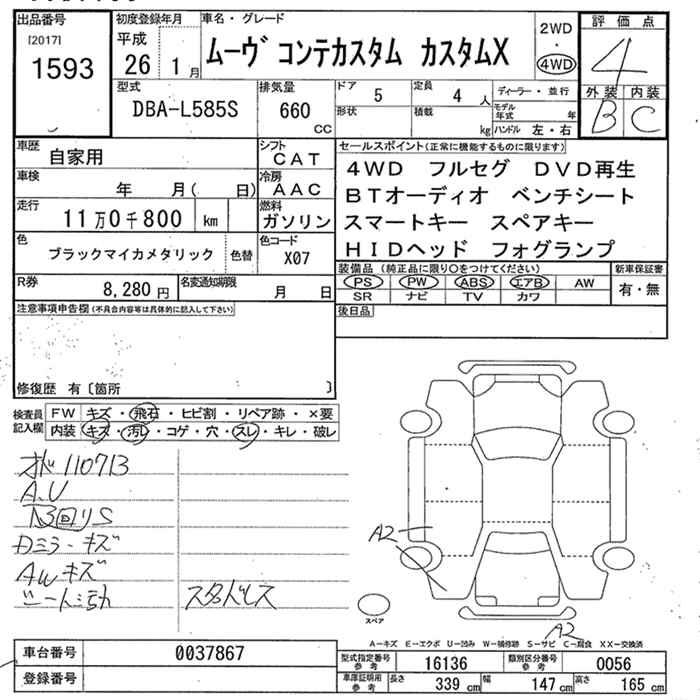 出品番号
[2017]
1593
初度登録年月
平成
26 1月
車名・グレード
ムーヴ コンテカスタム カスタムX
2WD
・
4WD
評価点
4
外装 内装
B C
型式
DBA-L585S
排気量
660
CC
ドア 5
定員 4 人
形状
積載
kg
ディーラー・並行
モデル年式 年
ハンドル 左・右
車歴
自家用
シフト
CAT
車検
年 月( 日)
冷房
AAC
走行
11万0千800 km
燃料
ガソリン
色
ブラックマイカメタリック
色替
色コード
X07
R券
8,280円
名変通知期限
月 日
セールスポイント(正常に機能するものに限ります)
4WD フルセグ DVD再生
BTオーディオ ベンチシート
スマートキー スペアキー
HIDヘッド フォグランプ
装備品(純正品に限り○をつけてください)
PS PW ABS エアB AW
SR ナビ TV カワ
新車保証書
有・無
後日品
注意事項申告欄(不具合内容等は具体的に記入して下さい)
修復歴 有〔箇所 〕
検査員
記入欄
FW キズ・飛石・ヒビ割・リペア跡・×要
内装 キズ・汚レ・コゲ・穴・スレ・キレ・破レ
110713
A.U
キズ
AWキズ
スタッドレス
A2
スペア
A2
A－キズ E－エクボ U－凹み W－補修跡 S－サビ C－腐食 XX－交換済
車台番号
0037867
登録番号
型式指定番号
参考
16136
類別区分番号
参考
0056
車庫証明用
参考
長さ 339 cm 幅 147 cm 高さ 165 cm